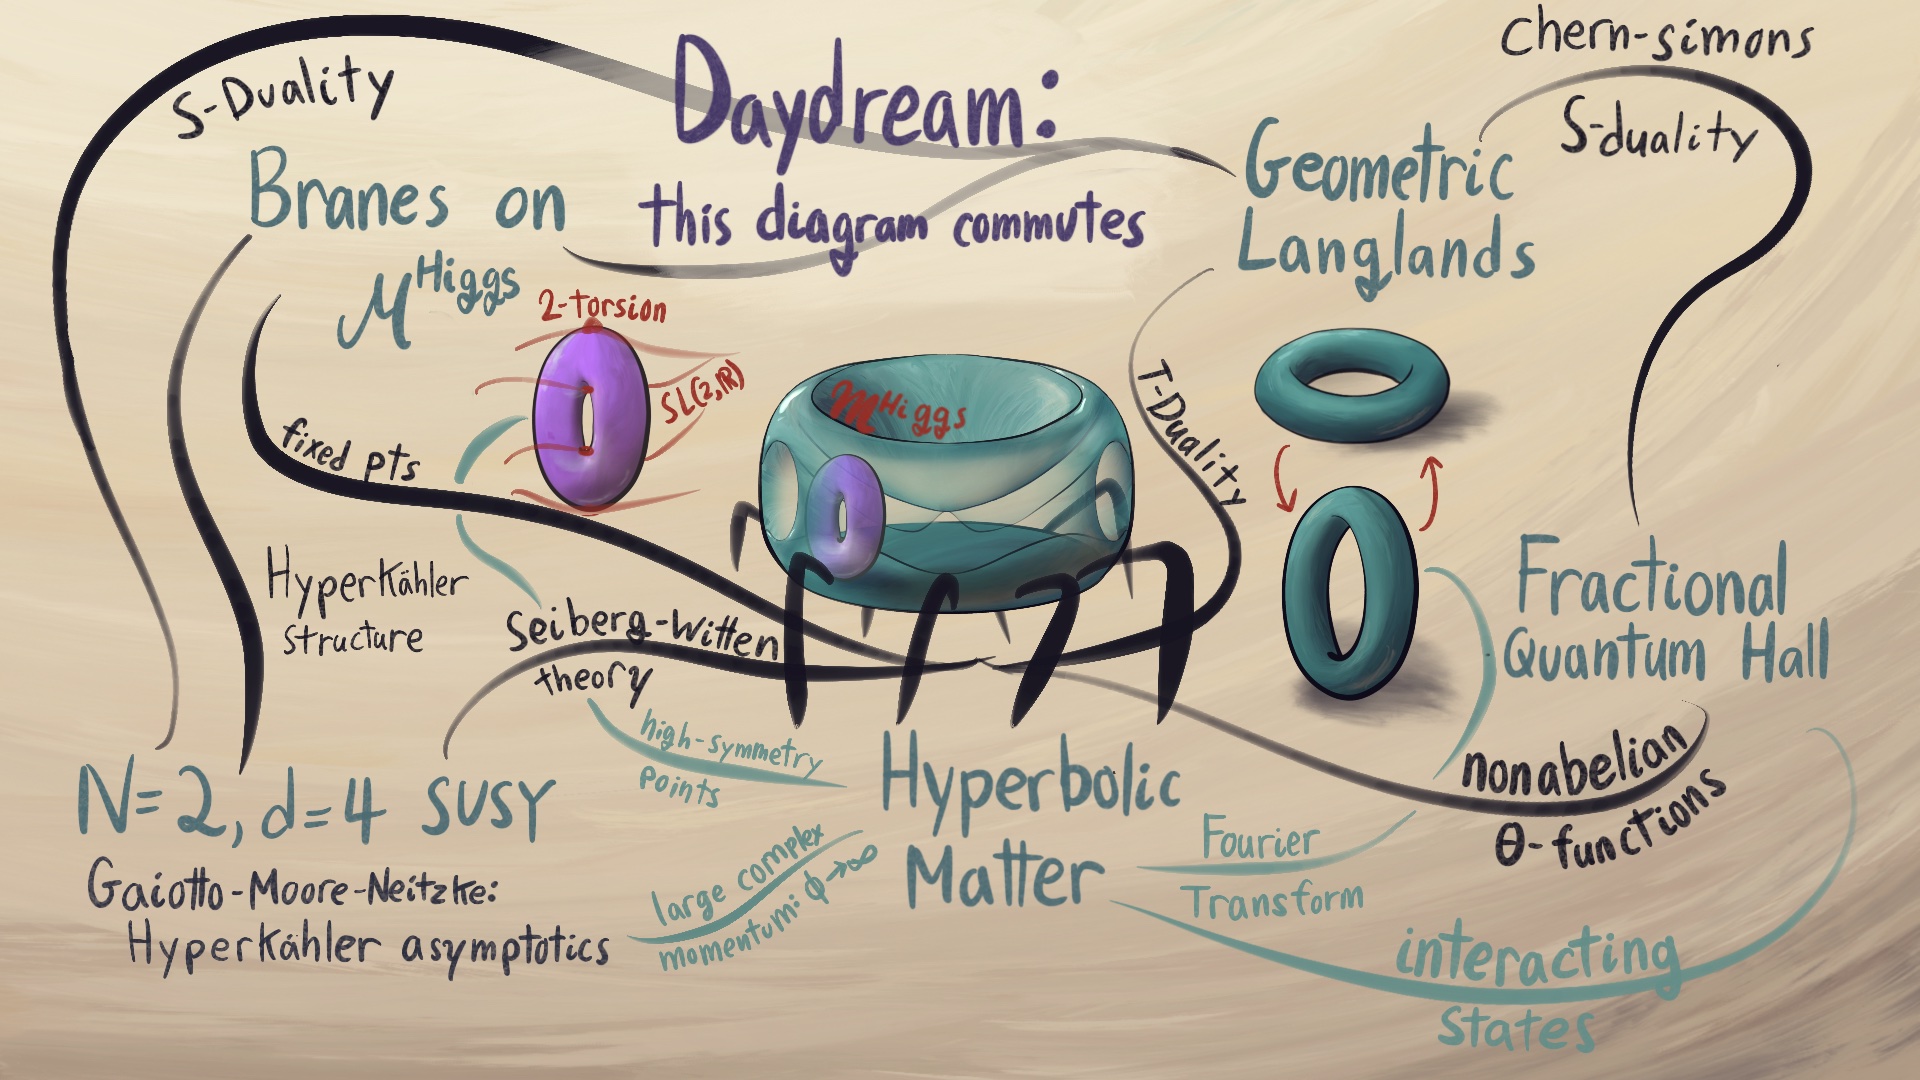 Chern-simons
S-Duality
Daydream:
this diagram commutes
S-duality
Branes on
M^Higgs
Geometric
Langlands
2-torsion
SL(2,R)
M^Higgs
T-Duality
fixed pts
Hyperkähler
structure
Seiberg-Witten
theory
Fractional
Quantum Hall
high-symmetry
points
nonabelian
θ-functions
N=2, d=4 SUSY
Gaiotto-Moore-Neitzke:
Hyperkähler asymptotics
large complex
momentum: ϕ→∞
Hyperbolic
Matter
Fourier
Transform
interacting
states